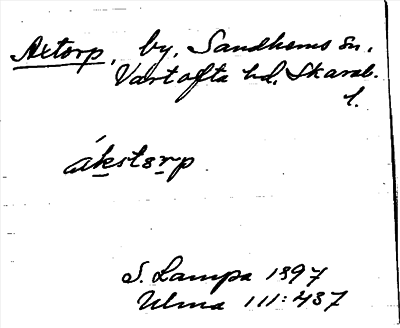 Axtorp, by, Sandhems sn.
Vartofta hd. Skarab.
l.
ákstorp
S. Lampa 1897
Ulma 111:437